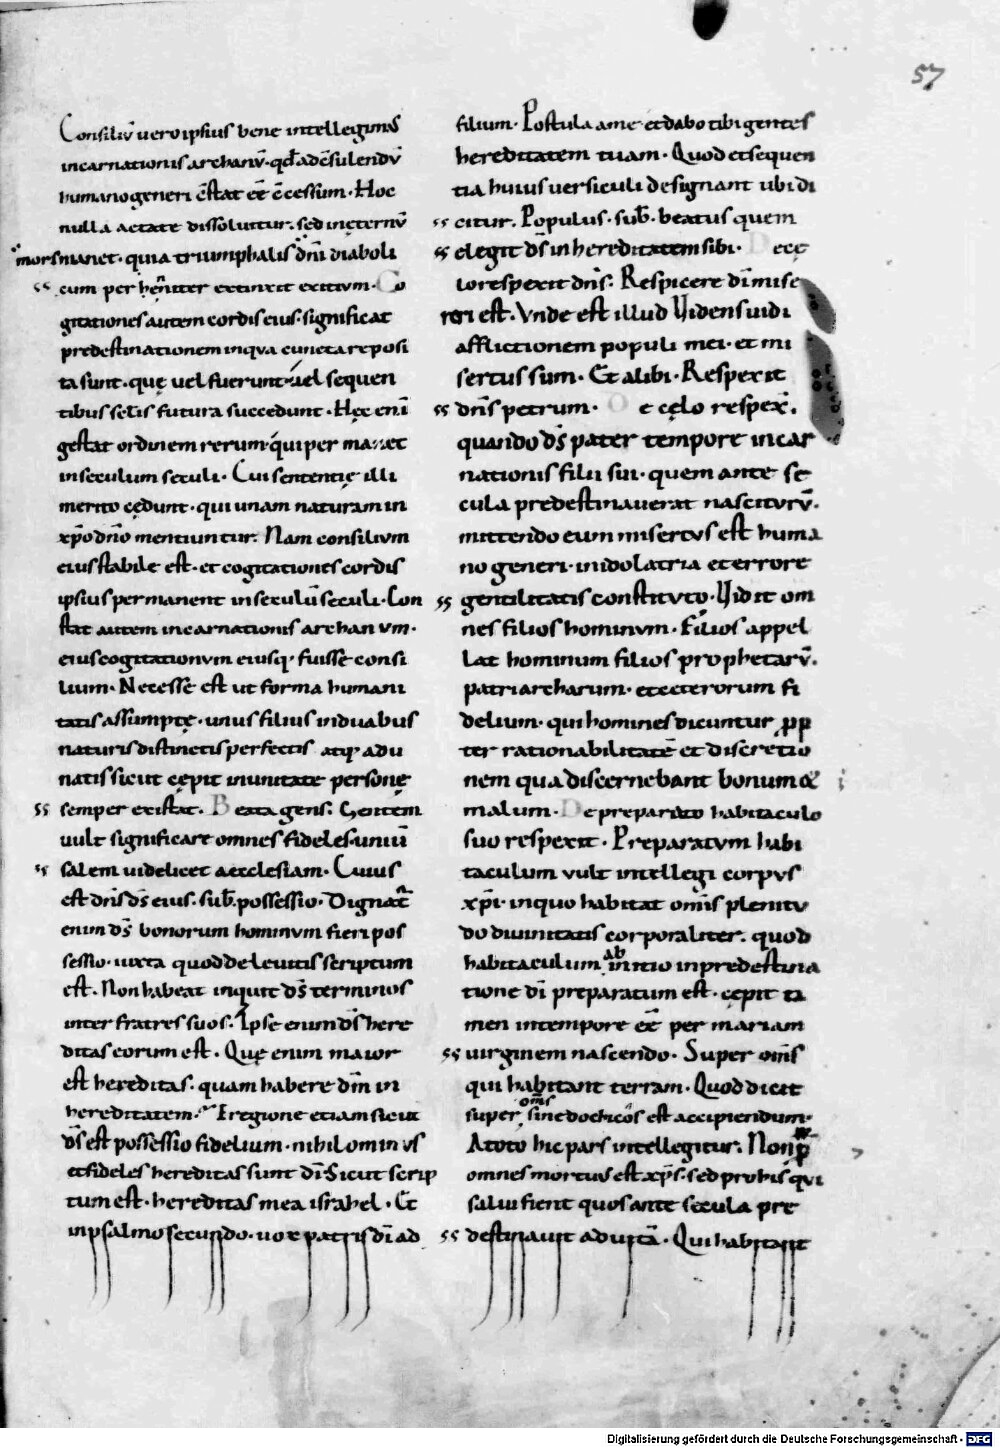 57
Consiliū vero ipsius bene intellegimus
incarnationis archanū· qđ ad c̄sulendū
humano generi c̄stat eē c̄cessum· Hoc
nulla aetate dissoluitur· sed in ęternū
manet· quia triumphalis dn̄i diaboli
mors
cum perhenniter extinxit exitium· Co
gitationes autem cordis eius· significat
predestinationem in qua cuncta reposi
ta sunt· quę vel fuerunt· vel sequen
tibus sclis futura succedunt· Hęc enī
gestat ordinem rerum· qui per manet
in seculum seculi· Cui sententię illi
merito cędunt· qui unam naturam in
xp̄o dn̄o mentiuntur· Nam consilium
eius stabile est· et cogitationes cordis
ipsius permanent in seculū seculi· Con
stat autem incarnationis archanum·
eius cogitationum eiusq· fuisse consi
lium· Necesse est ut forma humani
tatis assumptę· unus filius in duabus
naturis distinctis perfectis atq· adu
natis sicut cępit in unitate personę
semper existat· Beata gens· Gentem
vult significare omnes fideles· univ̄
salem videlicet aecclesiam· Cuius
est dn̄s ds̄ eius· sub̄· possessio· Dignat̄
enim ds̄ bonorum hominum fieri pos
sessio· iuxta quod de levitis scriptum
est· Non habeat inquit ds̄ terminos
inter fratres suos· Ipse enim ds̄ here
ditas eorum est· Quę enim maior
est hereditas· quam habere dm̄ in
hereditatem· E regione etiam sicut
ds̄ est possessio fidelium· nihilominus
et fideles hereditas sunt dī· Sicut scrip
tum est· hereditas mea israhel· Et
in psalmo secundo· vox patris dī ad
filium· Postula a me et dabo tibi gentes
hereditatem tuam· Quod et sequen
tia huius versiculi designant ubi di
citur· Populus· sub̄· beatus quem
elegit ds̄ in hereditatem sibi· De cę
lo respexit dn̄s· Respicere dī mise
reri est· Unde est illud Videns vidi
afflictionem populi mei· et mi
sertus sum· Et alibi· Respexit
dn̄s petrum· De cęlo respex̄·
quando ds̄ pater tempore incar
nationis filii sui· quem ante se
cula predestinaverat nasciturū·
mittendo eum misertus est huma
no generi· in idolatria et errore
gentilitatis constituto· Vidit om
nes filios hominum· Filios appel
lat hominum filios prophetarū·
patriarcharum· et ceterorum fi
delium· qui homines dicuntur ꝓp
ter rationabilitatē et discretio
nem qua discernebant bonum &
malum· De preparato habitaculo
suo respexit· Preparatum habi
taculum vult intellegi corpus
xp̄i· in quo habitat om̄is plenitu
do divinitatis corporaliter· quod
habitaculum ab initio in predestina
tione dī preparatum est· cępit ta
men in tempore eē per mariam
virginem nascendo· Super om̄s
qui habitant terram· Quod dicit
super om̄s sinedochicos est accipiendum·
A toto hic pars intellegitur· Non p̱
omnes mortuus est xp̄s· sed pro his qui
salvi fient quos ante secula pre
destinavit ad vitā· Qui habitant
Digitalisierung gefördert durch die Deutsche Forschungsgemeinschaft - DFG